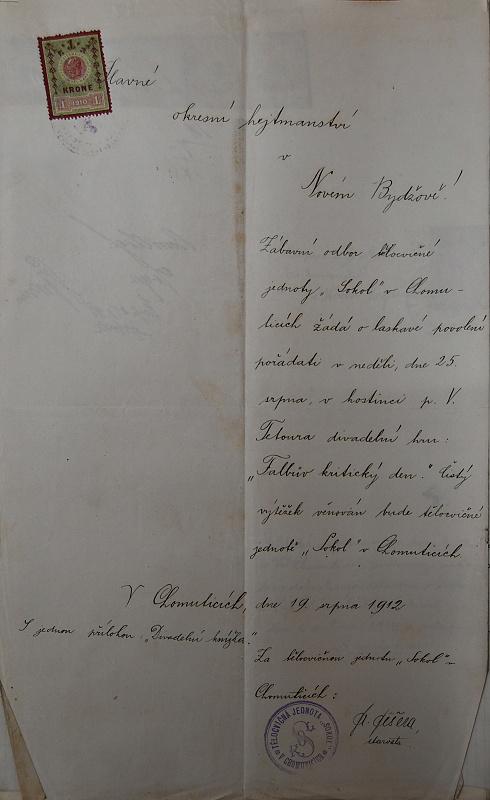 1
KRONE
1 1910 1
Slavné
okresní hejtmanství
v
Novém Bydžově!
Zábavní odbor tělocvičné
jednoty „Sokol" v Chomu-
ticích žádá o laskavé povolení
pořádati v neděli, dne 25.
srpna, v hostinci p. V.
Fetoura divadelní hru:
„Falbův kritický den." Čistý
výtěžek věnován bude tělocvičné
jednotě „Sokol" v Chomuticích
V Chomuticích, dne 19. srpna 1912
S jednou přílohou: „Divadelní knížka".
Za tělocvičnou jednotu „Sokol" –
Chomuticích:
starosta
TĚLOCVIČNÁ JEDNOTA „SOKOL" V CHOMUTICÍCH
S